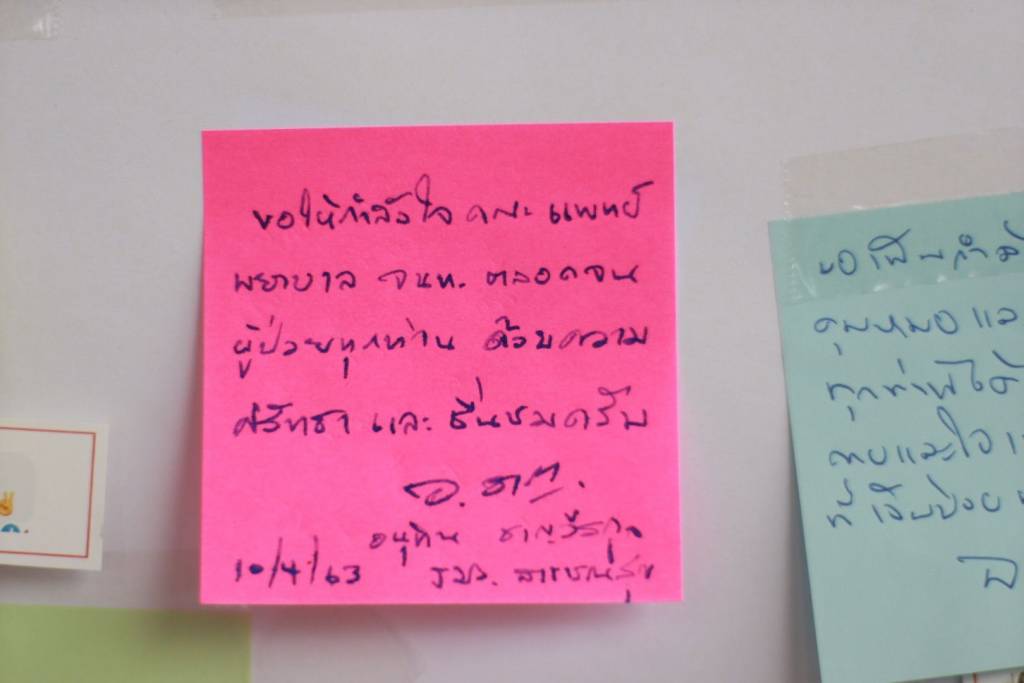 ขอให้กำลังใจ คณะ แพทย์
พยาบาล จนท. ตลอดจน
ผู้ป่วยทุกท่าน ด้วยความ
ศรัทธา และ ชื่นชมครับ
อ. ชาญ.
อนุทิน ชาญวีรกูล
10/4/63 รมว. สาธารณสุข
ขอเป็นกำลัง
คุณหมอ แล
ทุกท่านได้
กายและใจ
ที่เจ็บป่วย